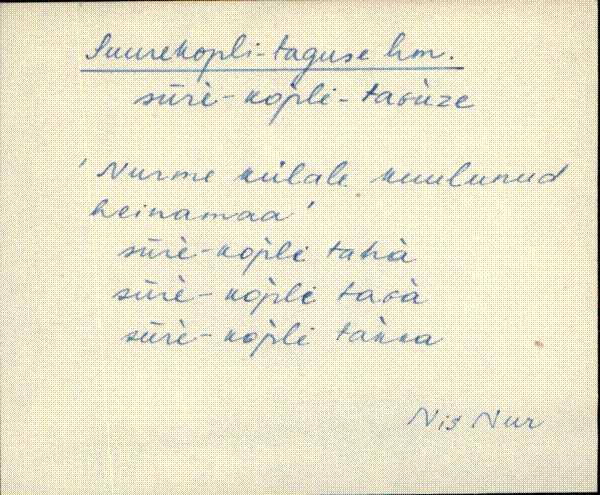 Suurekopli-taguse hm.
sūrè-kòp̀li-taGùze
'Nurme külale kuulunud
heinamaa'
sūrè-kòp̀li tahà
sūrè-kòp̀li taGà
sūrè-kòp̀li tàkka
Nis Nur